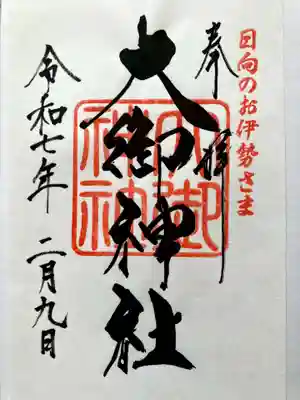 日向のお伊勢さま
奉拝
大御神社
大御神社
令和七年 二月九日